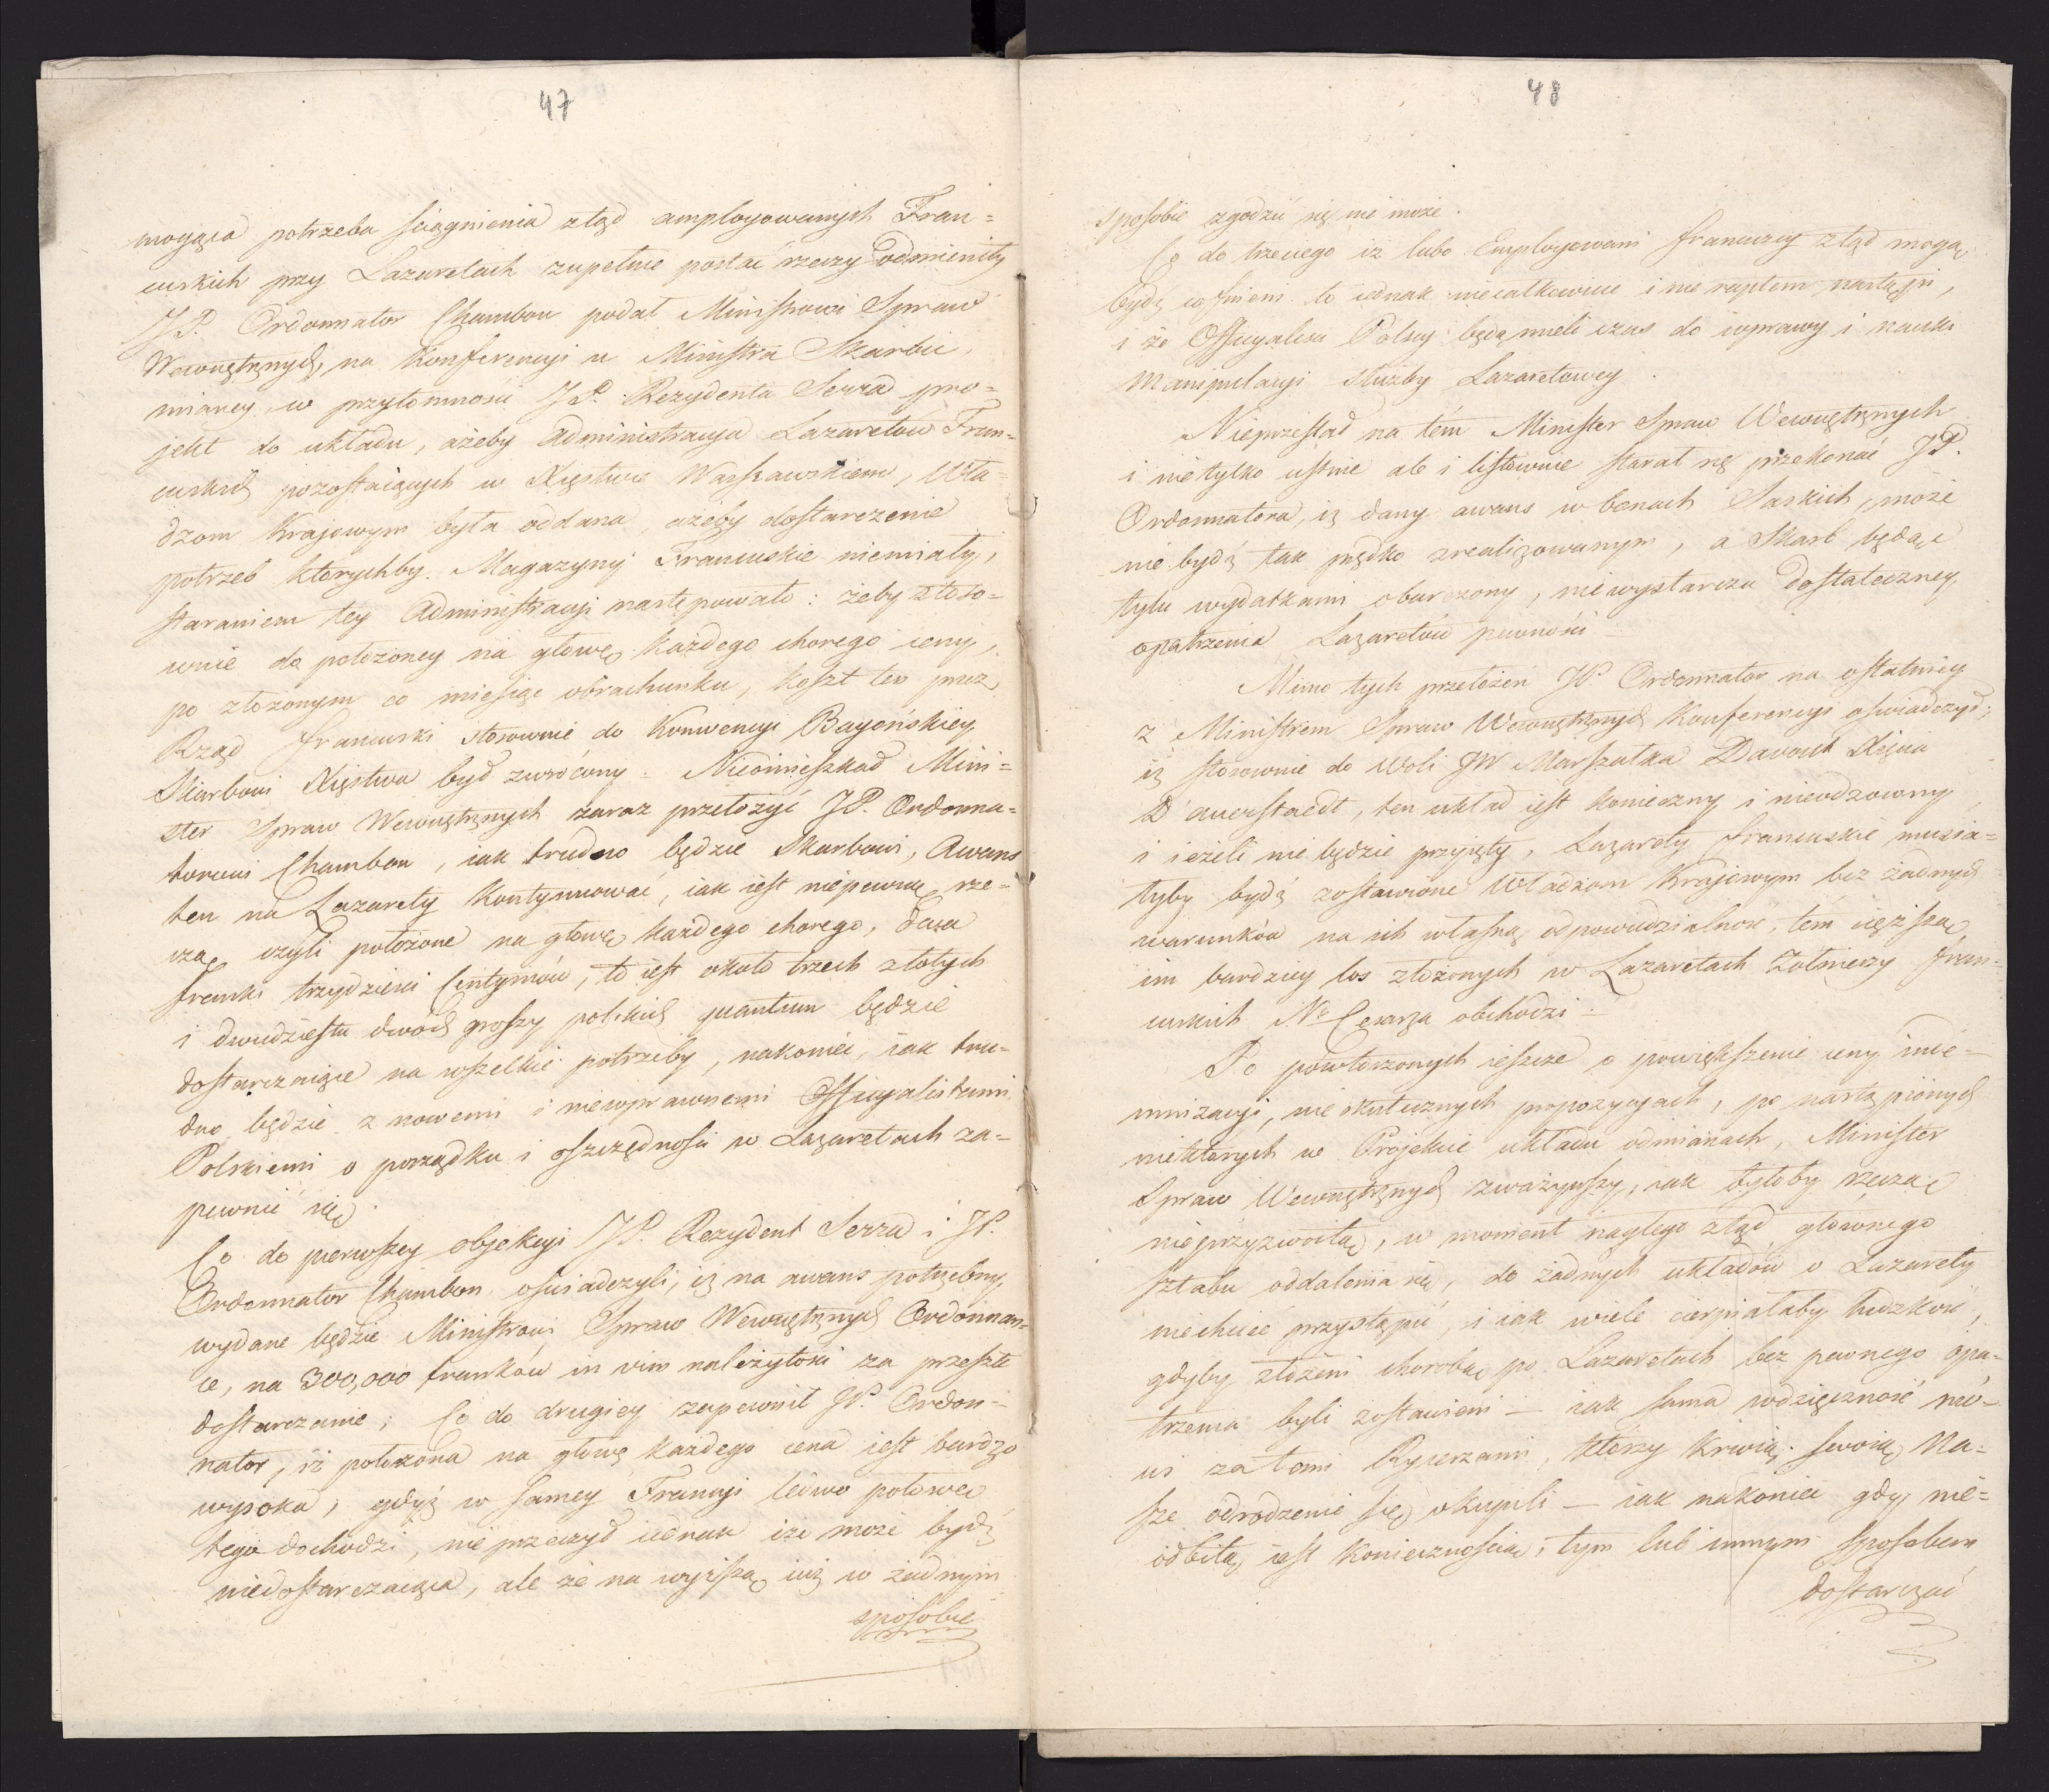 47
mogąca potrzeba ściągnienia ztąd amployowanych Fran=
cuskich przy Lazaretach zupełnie postać rzeczy odmieniły
JP. Ordonnator Chambon podał Ministrowi Spraw
Wewnętrznych, na Konferencyi u Ministra Skarbu,
mianey, w przytomności JP. Rezydenta Serra pro=
jekt do układu, ażeby Administracya Lazaretów Fran=
cuskich pozostaiących w Xięstwie Warszawskiem, Wła=
dzom Krajowym była oddana, ażeby dostarczenie
potrzeb którychby Magazyny Francuskie niemiały,
staraniem tey Administracyi następowało: żeby stoso=
wnie do położoney na głowę każdego chorego ceny,
po złożonym co miesiąc obrachunku, koszt ten przez
Rząd francuski stosownie do Konwencyi Bayońskiey
Skarbowi Xięstwa był zwrócony. Nieomieszkał Mini=
ster Spraw Wewnętrznych zaraz przełożyć JP. Ordonna=
torowi Chambon, iak trudno będzie Skarbowi, Awans
ten na Lazarety kontynuować, iak iest niepewną rze=
czą, czyli położone na głowę każdego chorego, dwa
franki trzydzieści Centymów, to iest około trzech złotych
i dwudziestu dwóch groszy polskich quantum będzie
dostarczaiące na wszelkie potrzeby, nakoniec, iak tru=
dno będzie z nowemi i niewprawnemi Officyalistami
Polskiemi o porządku i oszczędności w Lazaretach za=
pewnić się.
Co do pierwszey objekcyi JP. Rezydent Serra i JP.
Ordonnator Chambon oświadczyli, iż na awans potrzebny,
wydane będzie Ministrowi Spraw Wewnętrznych Ordonnan=
ce, na 300,000 franków in vim należytości za przeszłe
dostarczanie; Co do drugiey zapewnił JP. Ordon=
nator, iż położona na głowę każdego cena iest bardzo
wysoka, gdyż w samey Francyi ledwo połowę
tego dochodzi, nie przeczył iednak iże może bydź
niedostarczaiąca, ale że na wyższą iuż w żadnym
sposobie
48
sposobie zgodzić się nie może.
Co do trzeciego iż lubo Employowani francuzcy ztąd mogą
bydź cofnieni to iednak niecałkowicie i nie raptem nastąpi,
i że Officyaliści Polscy będą mieli czas do wprawy i nauki
Manipulacyi służby Lazaretowey.
Nieprzestał na tém Minister Spraw Wewnętrznych
i nietylko ustnie ale i listownie starał się przekonać JP.
Ordonnatora, iż dany awans w bonach Saskich, może
nie bydź tak prędko zrealizowanym, a Skarb będąc
tylu wydatkami obarczony, niewystarcza dostateczney
opatrzenia Lazaretów pewności
Mimo tych przełożeń JP. Ordonnator na ostatniey
z Ministrem Spraw Wewnętrznych Konferencyi oświadczył;
iż stosownie do Woli JW Marszałka Davout Xięcia
D'auerstaedt, ten układ iest konieczny i nieodzowny,
i ieżeli nie będzie przyięty, Lazarety francuskie musia=
łyby bydź zostawione Władzom Krajowym bez żadnych
warunków na ich własną odpowiedzialność, tém cięższą
im bardziey los złożonych w Lazaretach Żołnierzy fran=
cuskich No Cesarza obchodzi.
Po powtórzonych ieszcze o powiększenie ceny inde=
mnizacyi, nieskutecznych propozycyach, po nastąpionych
niektórych w Projekcie układu odmianach, Minister
Spraw Wewnętrznych zważywszy, iak byłoby rzeczą
nieprzyzwoitą, w moment nagłego ztąd głównego
sztabu oddalenia się, do żadnych układów o Lazarety
niechcieć przystąpić, i iak wiele cierpiałaby ludzkość,
gdyby złożeni chorobą po Lazaretach bez pewnego opa=
trzenia byli zostawieni — iak sama wdzięczność mó=
wi za temi Rycerzami, którzy krwią swoią Na=
sze odrodzenie się okupili — iak nakoniec gdy nie=
odbitą iest koniecznością, tym lub innym sposobem
dostarczać